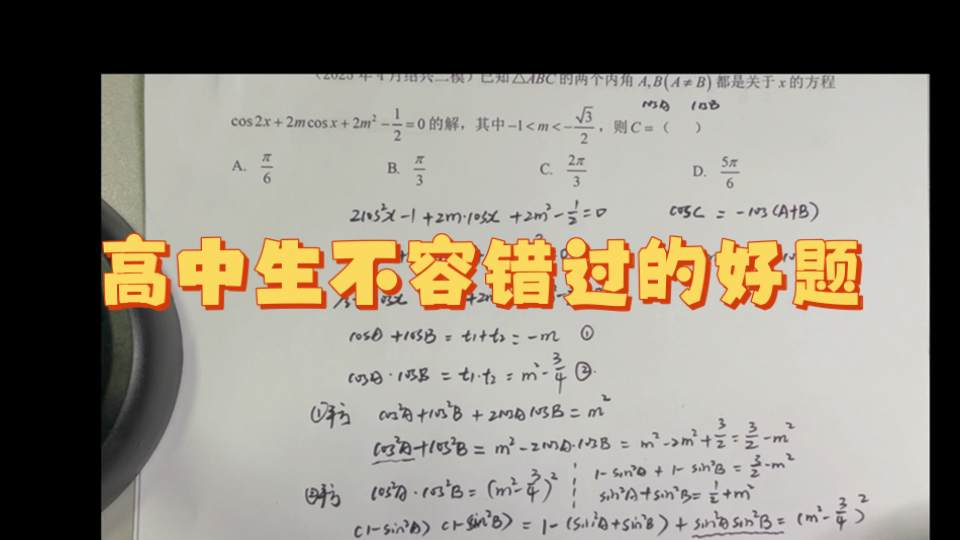 (2023年4月绍兴二模)已知△ABC的两个内角A,B(A≠B)都是关于x的方程
cosA cosB
cos2x+2mcosx+2m²-1/2=0的解,其中-1<m<-√3/2,则C=( )
A. π/6 B. π/3 C. 2π/3 D. 5π/6
2cos²x-1+2m·cosx+2m²-1/2=0 cosC=-cos(A+B)
高中生不容错过的好题
cosA+cosB=t₁+t₂=-m ①
cosA·cosB=t₁·t₂=m²-3/4 ②.
①平方 cos²A+cos²B+2cosAcosB=m²
cos²A+cos²B=m²-2cosA·cosB=m²-2m²+3/2=3/2-m²
②平方 cos²A·cos²B=(m²-3/4)² 1-sin²A+1-sin²B=3/2-m²
sin²A+sin²B=1/2+m²
(1-sin²A)(1-sin²B)=1-(sin²A+sin²B)+sin²Asin²B=(m²-3/4)²